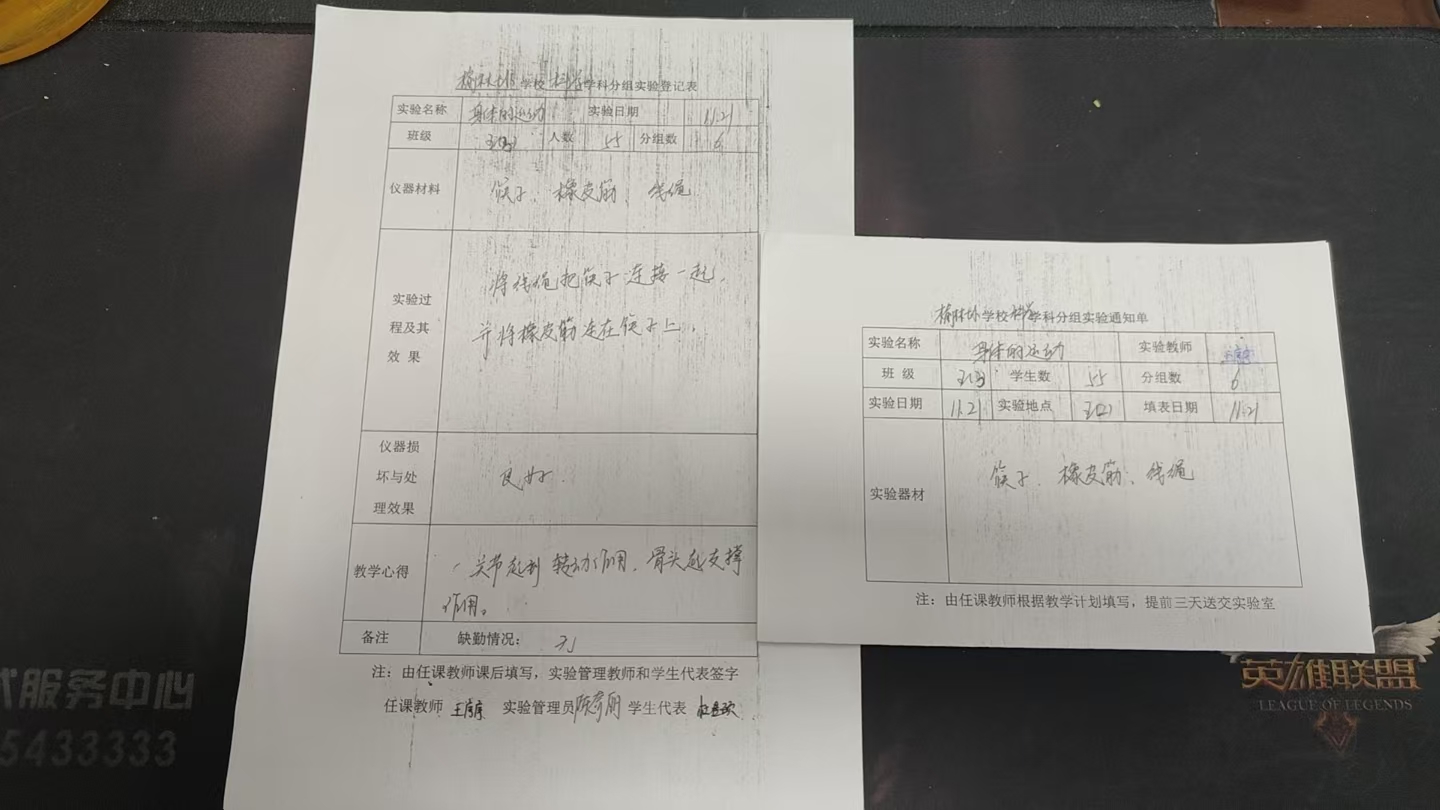 学校 科学学科分组实验登记表
实验名称 身体的运动 实验日期 11.21
班级 人数 55 分组数 6
仪器材料 筷子、橡皮筋、线绳
实验过程及其效果
将线绳把筷子连接一起,
并将橡皮筋连在筷子上.
仪器损坏与处理效果 良好.
教学心得 关节起到转动作用,骨头起支撑
作用。
备注 缺勤情况: 无
注:由任课教师课后填写,实验管理教师和学生代表签字
任课教师 实验管理员 学生代表
学校 科学学科分组实验通知单
实验名称 身体的运动 实验教师
班 级 学生数 55 分组数 6
实验日期 11.21 实验地点 填表日期 11.21
实验器材 筷子、橡皮筋、线绳
注:由任课教师根据教学计划填写,提前三天送交实验室
服务中心
5433333
英雄联盟
LEAGUE OF LEGENDS